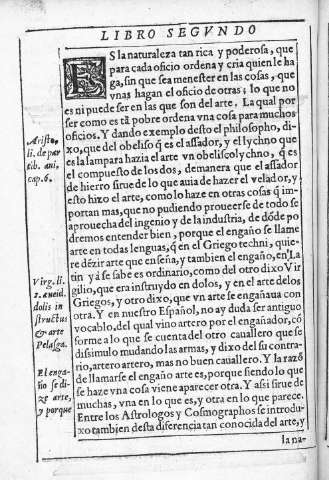 LIBRO SEGVNDO
ES la naturaleza tan rica y poderosa, que
para cada oficio ordena y cria quien le ha
ga, sin que sea menester en las cosas, que
vnas hagan el oficio de otras; lo que no
es ni puede ser en las que son del arte. La qual por
ser como es tā pobre ordena vna cosa para muchos
oficios. Y dando exemplo desto el philosopho, di-
xo, que del obelisq̃ q̃ es el assador, y el lychno que
es la lampara hazia el arte vn obeliscolychno, q̃ es
el compuesto de los dos, demanera que el assador
de hierro sirue de lo que auia de hazer el velador, y
esto hizo el arte, como lo haze en otras cosas q̃ im-
portan mas, que no pudiendo proueerse de todo se
aprouecha del ingenio y de la industria, de dōde po
dremos entender bien, porque el engaño se llame
arte en todas lenguas, q̃ en el Griego techni, quie-
re dézir arte que enseña, y tambien el engaño, en La
tin ya se sabe es ordinario, como del otro dixo Vir
gilio, que era instruydo en dolos, y en el arte delos
Griegos, y otro dixo, que vn arte se engañaua con
otra. Y en nuestro Español, no ay duda ser antiguo
vocablo, del qual vino artero por el engañador, cō
forme a lo que se cuenta del otro cauallero que se
dissimulo mudando las armas, y dixo del su contra-
rio, artero, artero, mas no buen cauallero. Y la razō
de llamarse el engaño arte es, porque siendo lo que
se haze vna cosa viene aparecer otra. Y assi sirue de
muchas, vna en lo que es, y otra en lo que parece.
Entre los Astrologos y Cosmographos se introdu-
xo tambien desta diferencia tan conocida del arte, y
la na-
Aristo,
li. de par
tib. ani,
cap. 6.
Virg. li.
2. aneid.
dolis in
structus
& arte
Pelasga.
El enga-
ño se di-
ze arte,
y porque